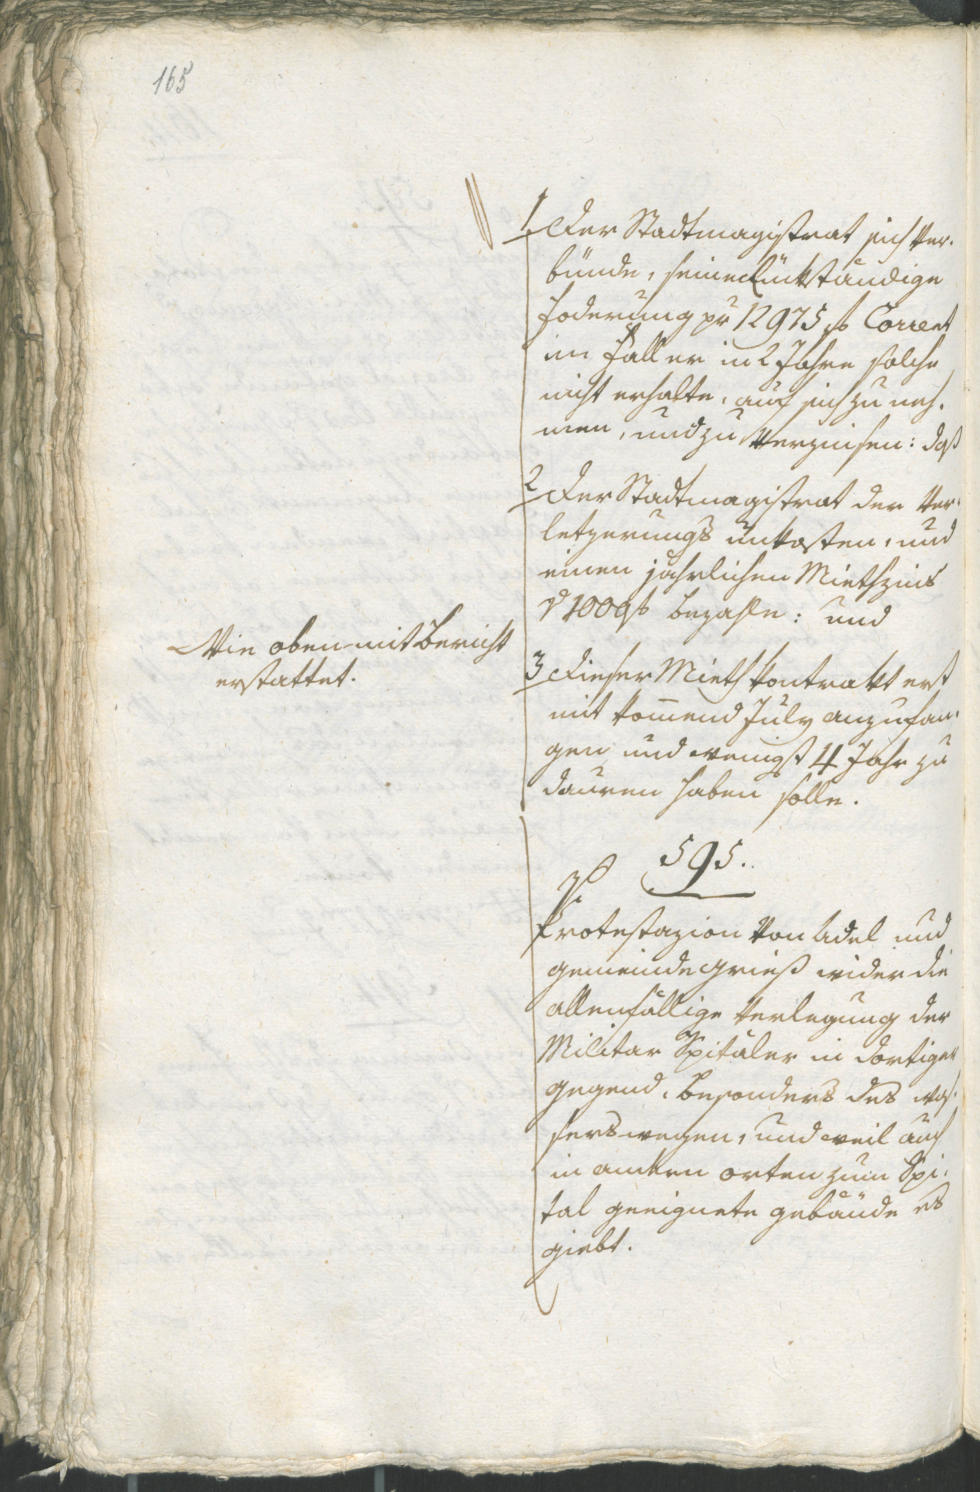 165
1 der Stadtmagistrat sich ver-
bünde, seine Rükständige
Foderung pr 12975 f Corrent
im Fall er in 2 Jahre solche
nicht erhalte, auf sich zu neh-
men, und zu verzinsen: daß
2 der Stadtmagistrat der Ver-
letzerungs Unkosten, und
einen jährlichen Miethzins
1000 f bezahle: und
3 dieser Mieth Kontrakt erst
mit komend July anzufan-
gen und wenigst 4 Jahr zu
dauren haben solle.
Wie oben mit Bericht
erstattet.
595.
Protestazion von Adel und
Gemeinde Grieß wider die
allenfällige Verlegung der
Militar Spitäler in dortiger
Gegend, besonders des Was-
sers wegen, und weil auch
in andern orten zum Spi-
tal geeignete gebäude es
giebt.